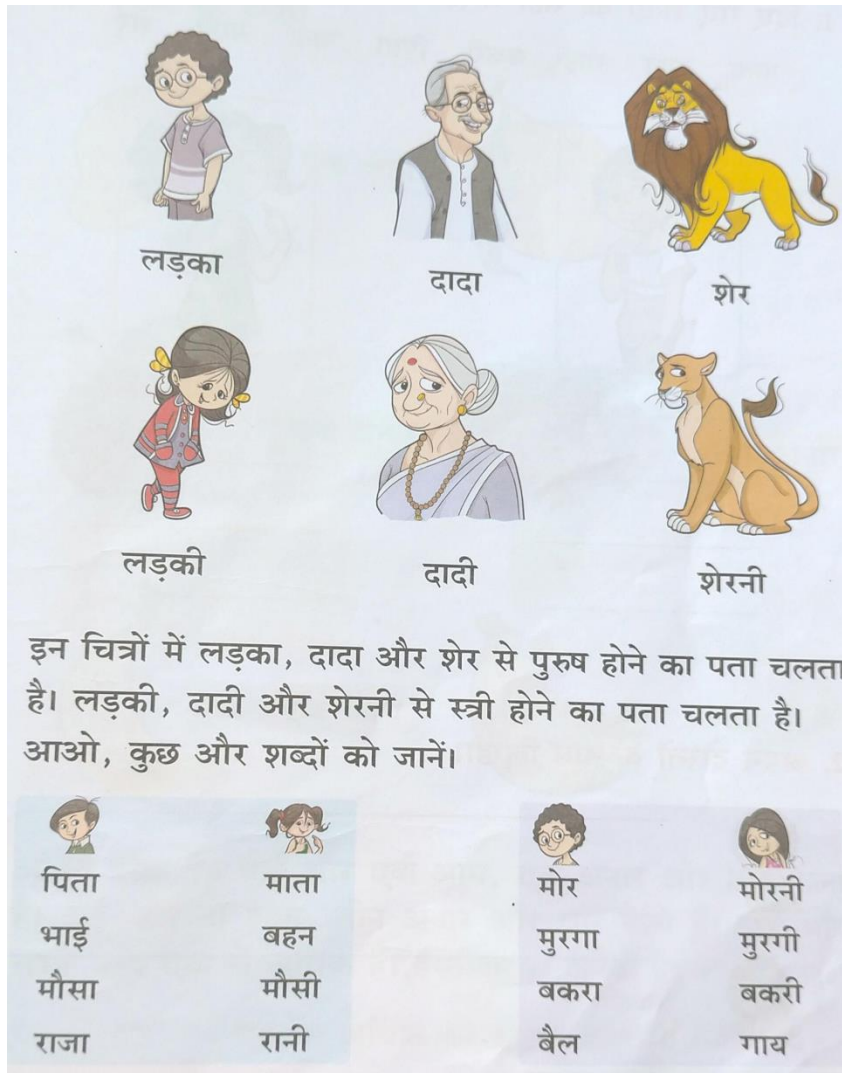 लड़का दादा शेर
लड़की दादी शेरनी
इन चित्रों में लड़का, दादा और शेर से पुरुष होने का पता चलता
है। लड़की, दादी और शेरनी से स्त्री होने का पता चलता है।
आओ, कुछ और शब्दों को जानें।
पिता माता मोर मोरनी
भाई बहन मुरगा मुरगी
मौसा मौसी बकरा बकरी
राजा रानी बैल गाय